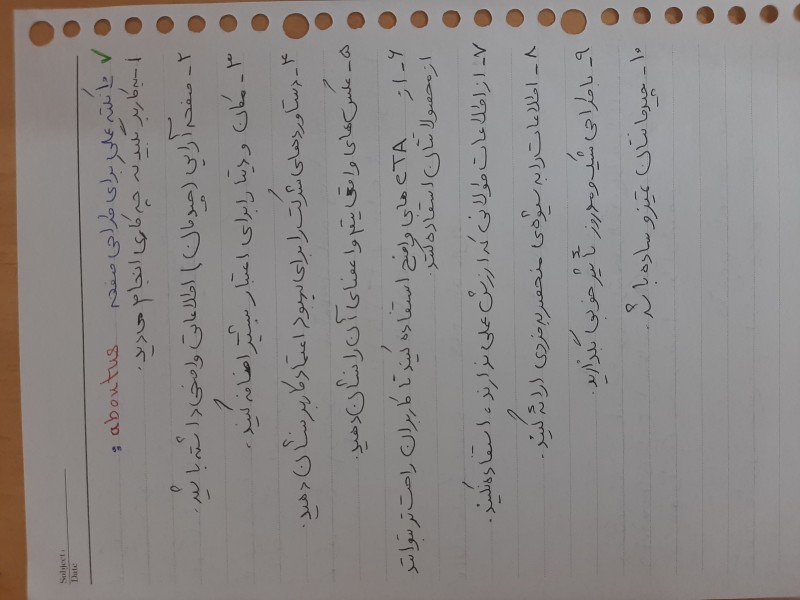 Subject:
Date
۱۰ نکته عملی برای طراحی صفحه about us :
۱- به کاربر بگویید که چه کاری انجام می‌دید.
۲- صفحه آرایی (چیدمان) اطلاعاتی واضحی داشته باشید.
۳- مکان و دیتا را برای اعتبار بیشتر اضافه کنید.
۴- دستاوردهای شرکت را برای بهبود اعتماد کاربر نشان دهید.
۵- عکس‌های واقعی تیم و اعضای آن را نشان دهید.
۶- از CTA های واضح استفاده کنید تا کاربران راحت تر بتوانند
از محصولاتتان استفاده کنند.
۷- از اطلاعات طولانی که ارزش عملی ندارند، استفاده نکنید.
۸- اطلاعات را به شیوه‌ی منحصر به فردی ارائه کنید.
۹- با طراحی شیک و به‌روز تأثیر خوبی بگذارید.
۱۰- چیدمانتان تمیز و ساده باشد.